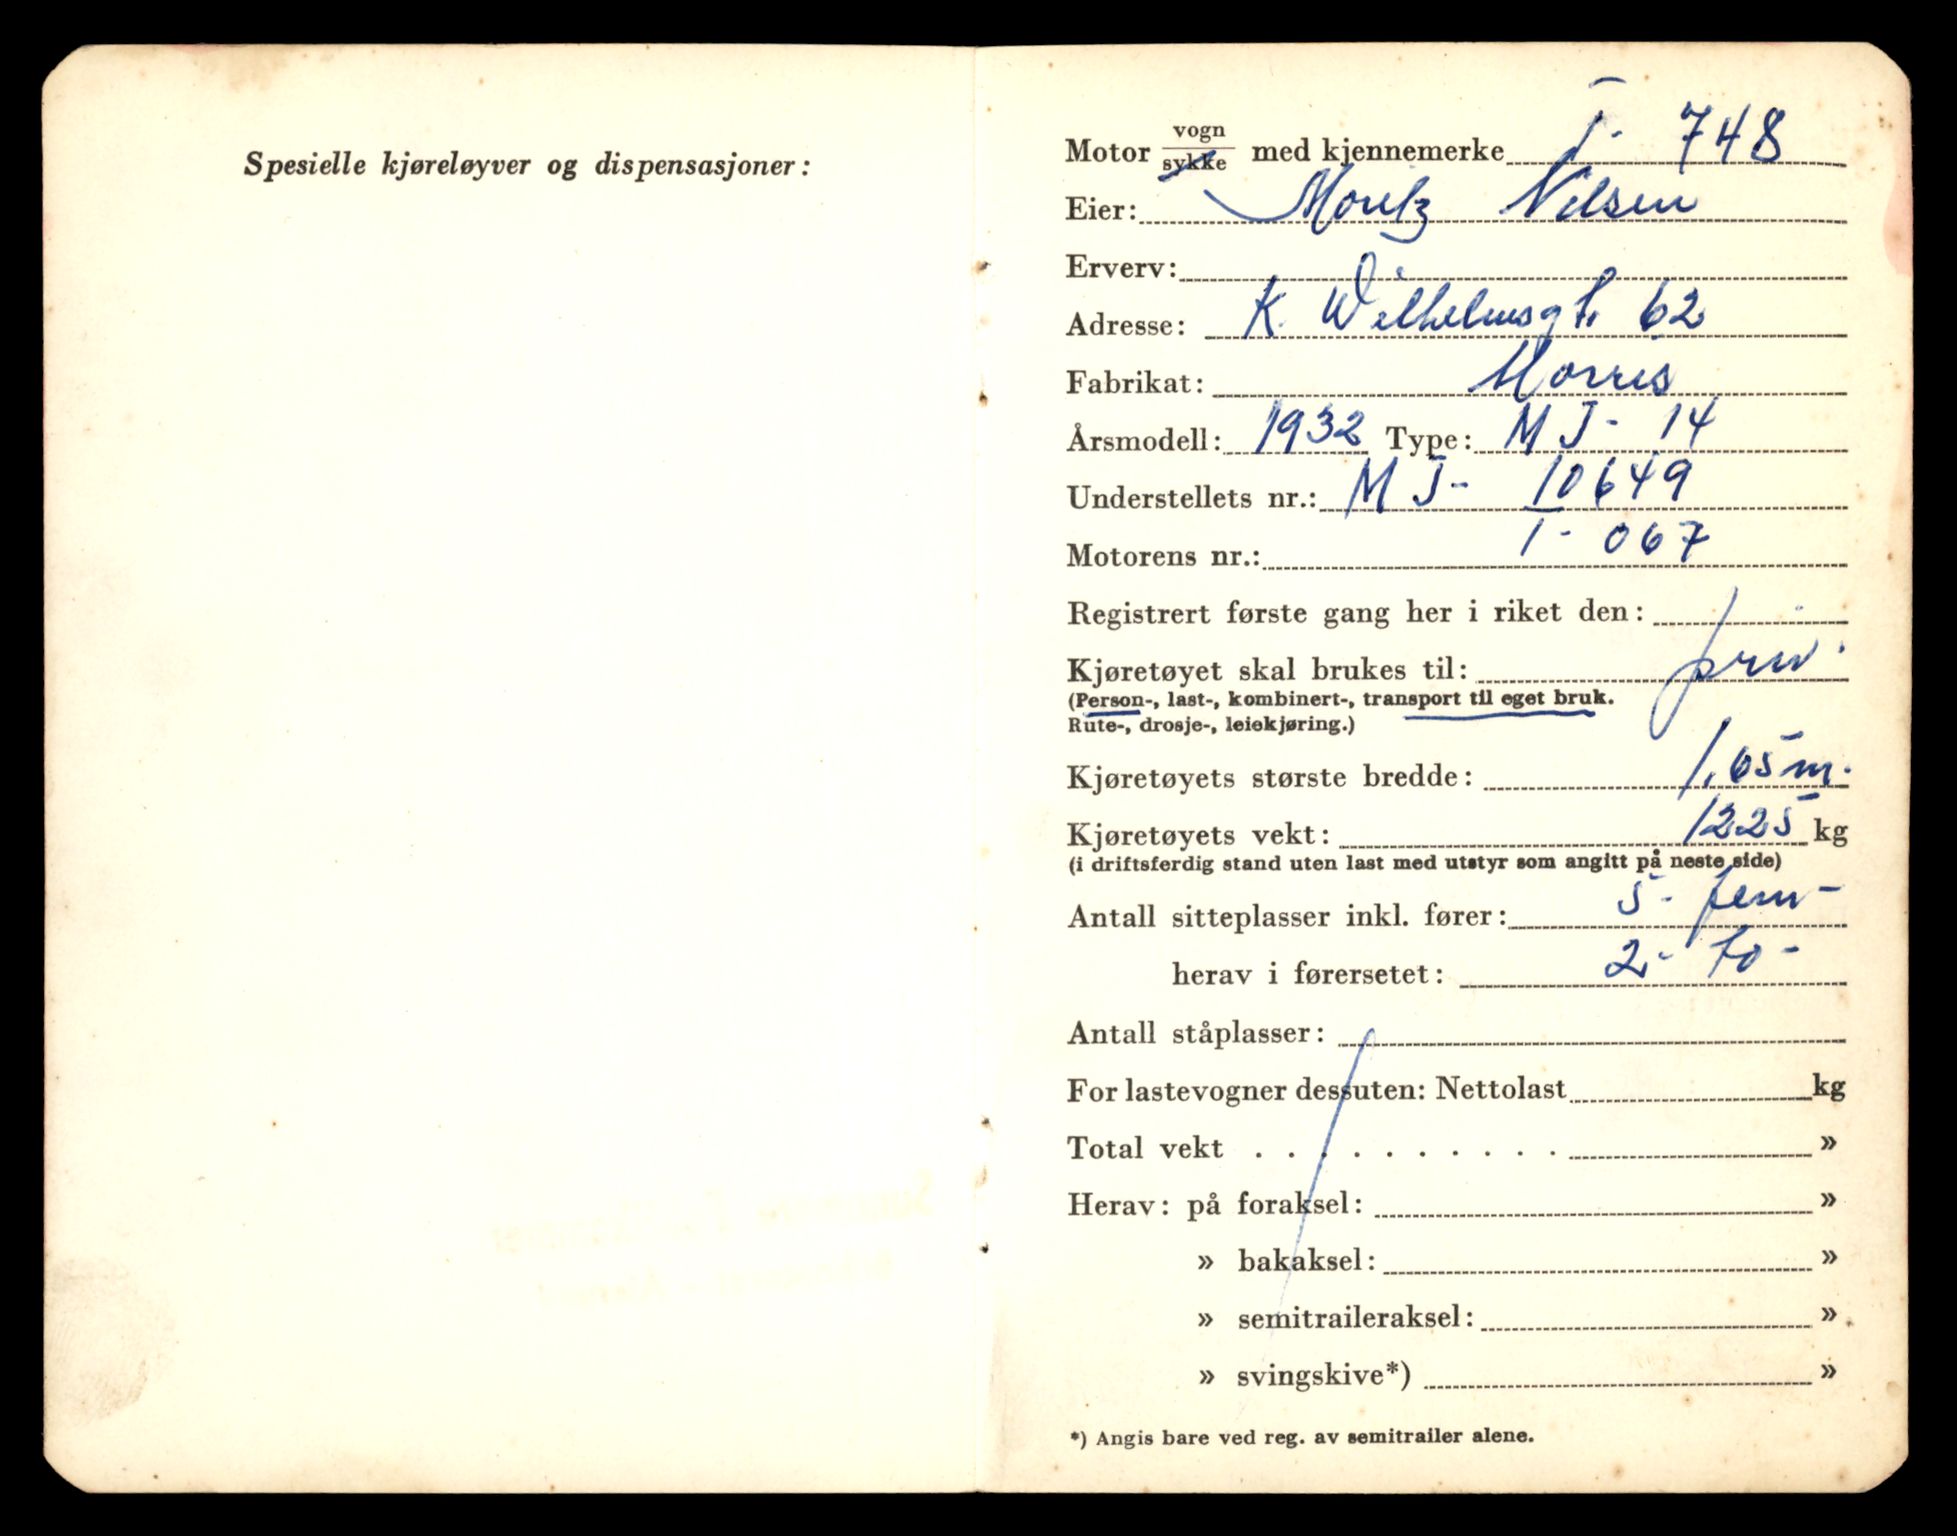 Spesielle kjøreløyver og dispensasjoner:
Motor vogn/sykke med kjennemerke T- 748
Eier: Moritz Nilsen
Erverv:
Adresse: K. Wilhelmsgt. 62
Fabrikat: Morris
Årsmodell: 1932 Type: MJ- 14
Understellets nr.: MJ- 10649
Motorens nr.: 1- 067
Registrert første gang her i riket den:
Kjøretøyet skal brukes til: priv.
(Person-, last-, kombinert-, transport til eget bruk.
Rute-, drosje-, leiekjøring.)
Kjøretøyets største bredde: 1,65 m.
Kjøretøyets vekt: 1225 kg
(i driftsferdig stand uten last med utstyr som angitt på neste side)
Antall sitteplasser inkl. fører: 5- fem-
herav i førersetet: 2- to-
Antall ståplasser:
For lastevogner dessuten: Nettolast kg
Total vekt . . . . . . . . . . »
Herav: på foraksel: »
» bakaksel: »
» semitraileraksel: »
» svingskive*) »
*) Angis bare ved reg. av semitrailer alene.